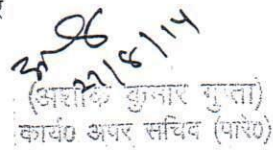 27/8/14
(अशोक कुमार गुप्ता)
कार्य० अपर सचिव (पारे०)